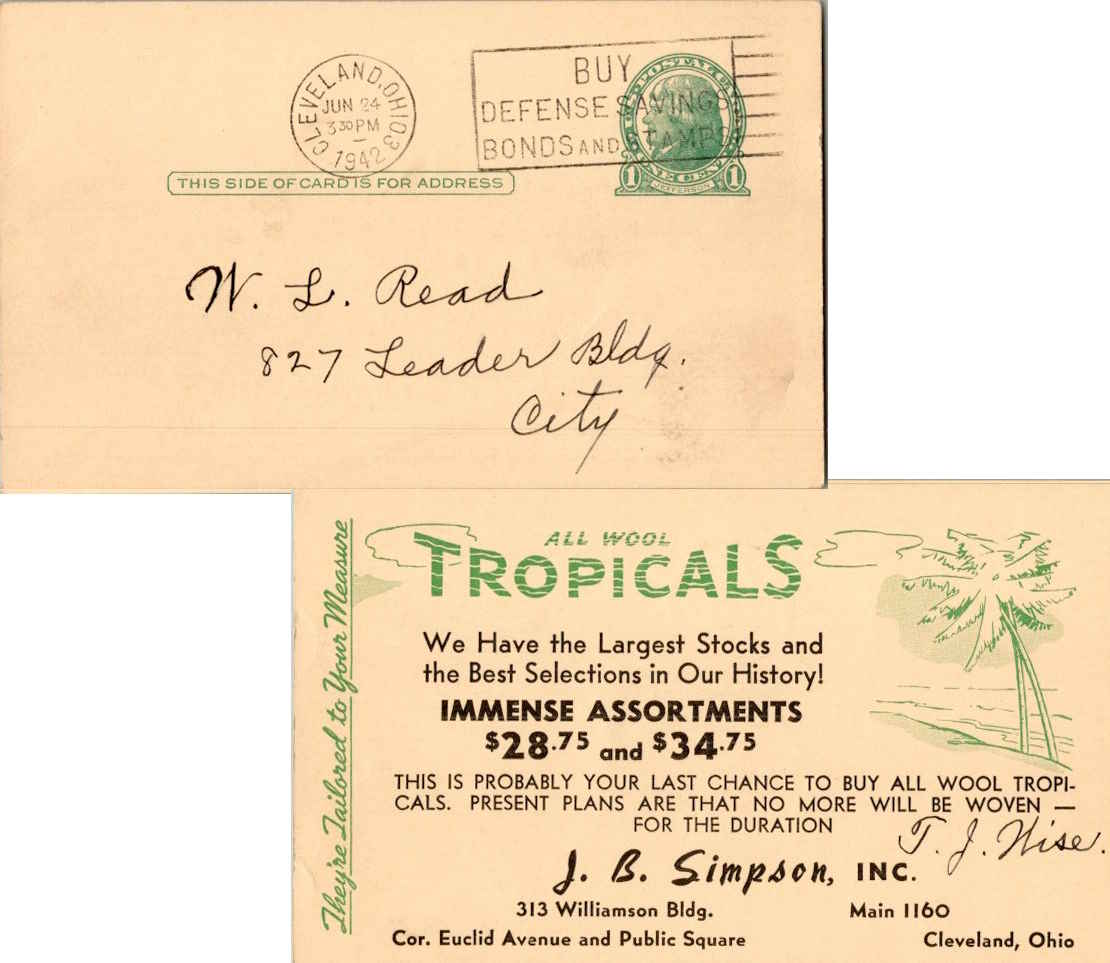 CLEVELAND, OHIO 3
JUN 24
3 30 PM
1942
BUY
DEFENSE SAVINGS
BONDS AND STAMPS
U.S. POSTAL CARD
ONE CENT
1 JEFFERSON 1
THIS SIDE OF CARD IS FOR ADDRESS
W. L. Read
827 Leader Bldg.
City
They're Tailored to Your Measure
ALL WOOL
TROPICALS
We Have the Largest Stocks and
the Best Selections in Our History!
IMMENSE ASSORTMENTS
$28.75 and $34.75
THIS IS PROBABLY YOUR LAST CHANCE TO BUY ALL WOOL TROPI-
CALS. PRESENT PLANS ARE THAT NO MORE WILL BE WOVEN —
FOR THE DURATION
T. J. Wise.
J. B. Simpson, INC.
313 Williamson Bldg. Main 1160
Cor. Euclid Avenue and Public Square Cleveland, Ohio